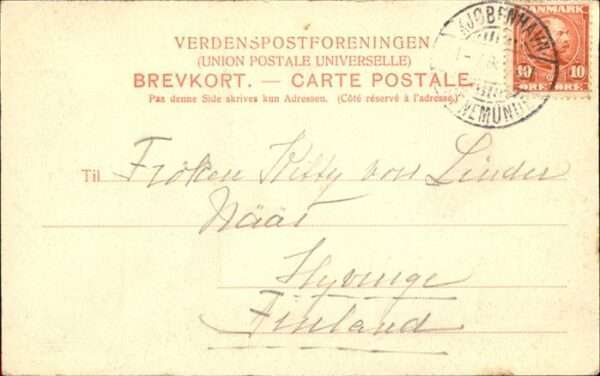 VERDENSPOSTFORENINGEN
(UNION POSTALE UNIVERSELLE)
BREVKORT. — CARTE POSTALE.
Paa denne Side skrives kun Adressen. (Côté réservé à l'adresse.)
KJØBENHAVN
DANMARK
10 10
ØRE ØRE
Til Fröken Kitty von Linder
Nääs
Hyvinge
Finland